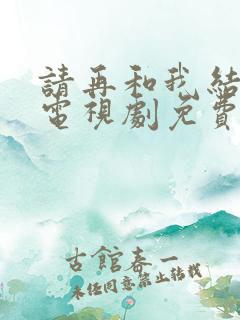 請再和我結
電視劇免費
古館春一
未任同意禁止转载